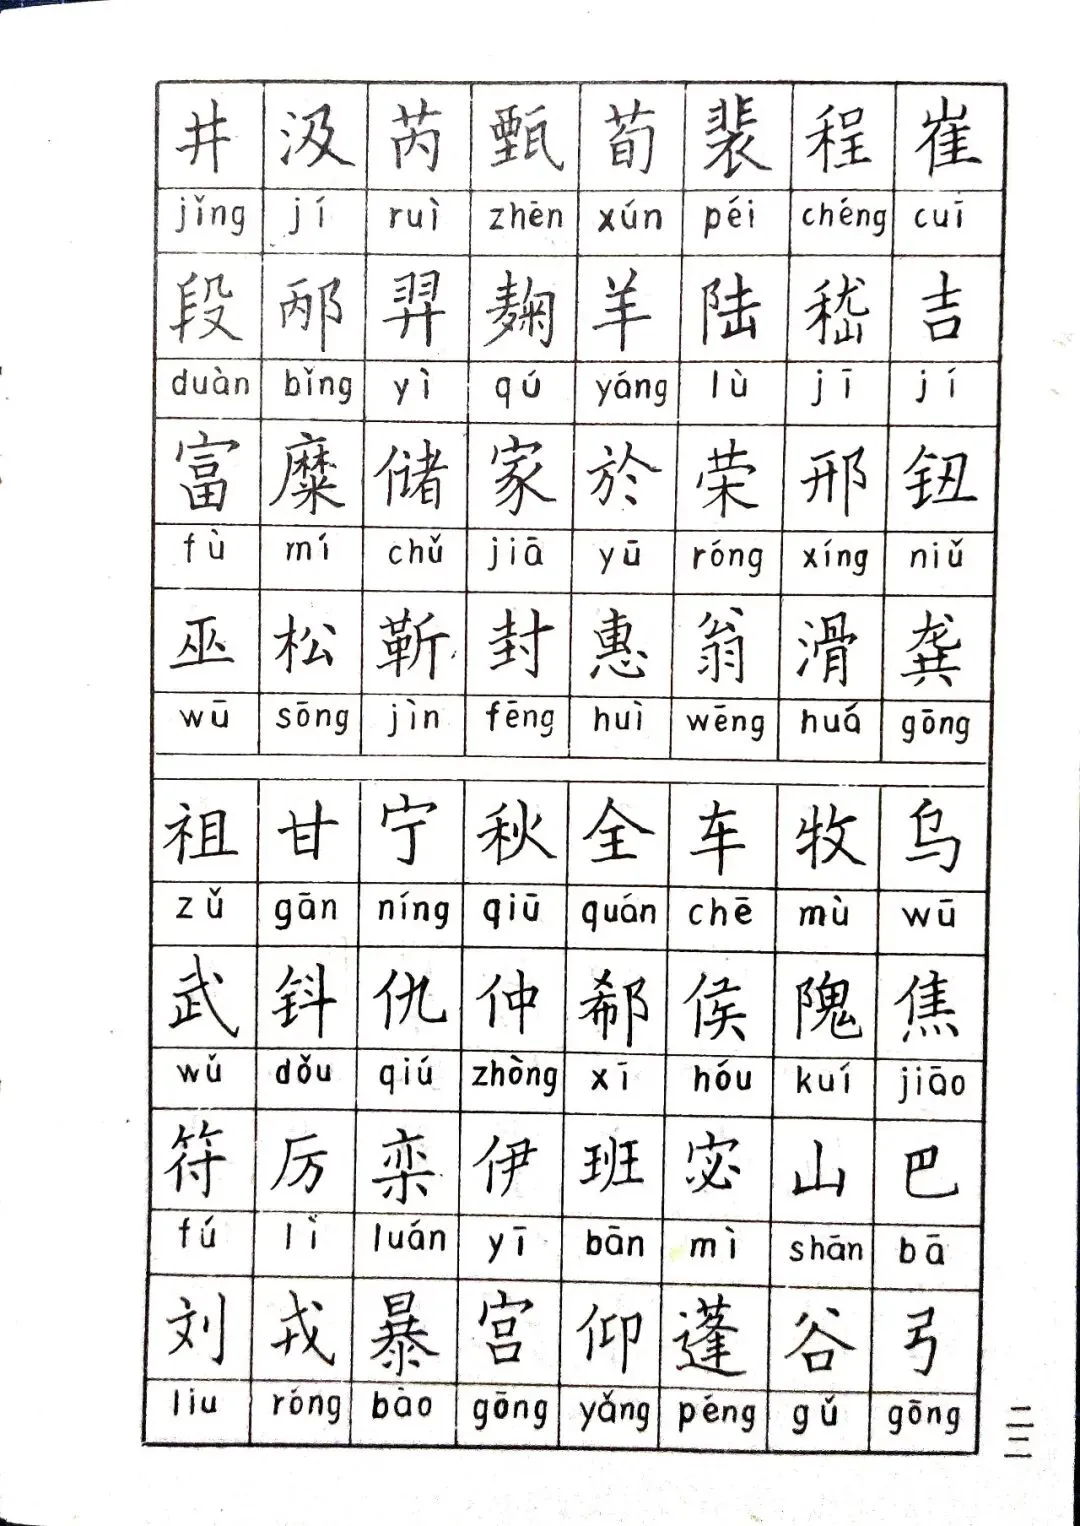 井 汲 芮 甄 荀 裴 程 崔
jǐng jí ruì zhēn xún péi chéng cuī
段 邴 羿 麹 羊 陆 嵇 吉
duàn bǐng yì qú yáng lù jī jí
富 糜 储 家 於 荣 邢 钮
fù mí chǔ jiā yū róng xíng niǔ
巫 松 靳 封 惠 翁 滑 龚
wū sōng jìn fēng huì wēng huá gōng
祖 甘 宁 秋 全 车 牧 乌
zǔ gān níng qiū quán chē mù wū
武 钭 仇 仲 郗 侯 隗 焦
wǔ dǒu qiú zhòng xī hóu kuí jiāo
符 厉 栾 伊 班 宓 山 巴
fú lǐ luán yī bān mì shān bā
刘 戎 暴 宫 仰 蓬 谷 弓
liu róng bào gōng yǎng péng gǔ gōng
二二